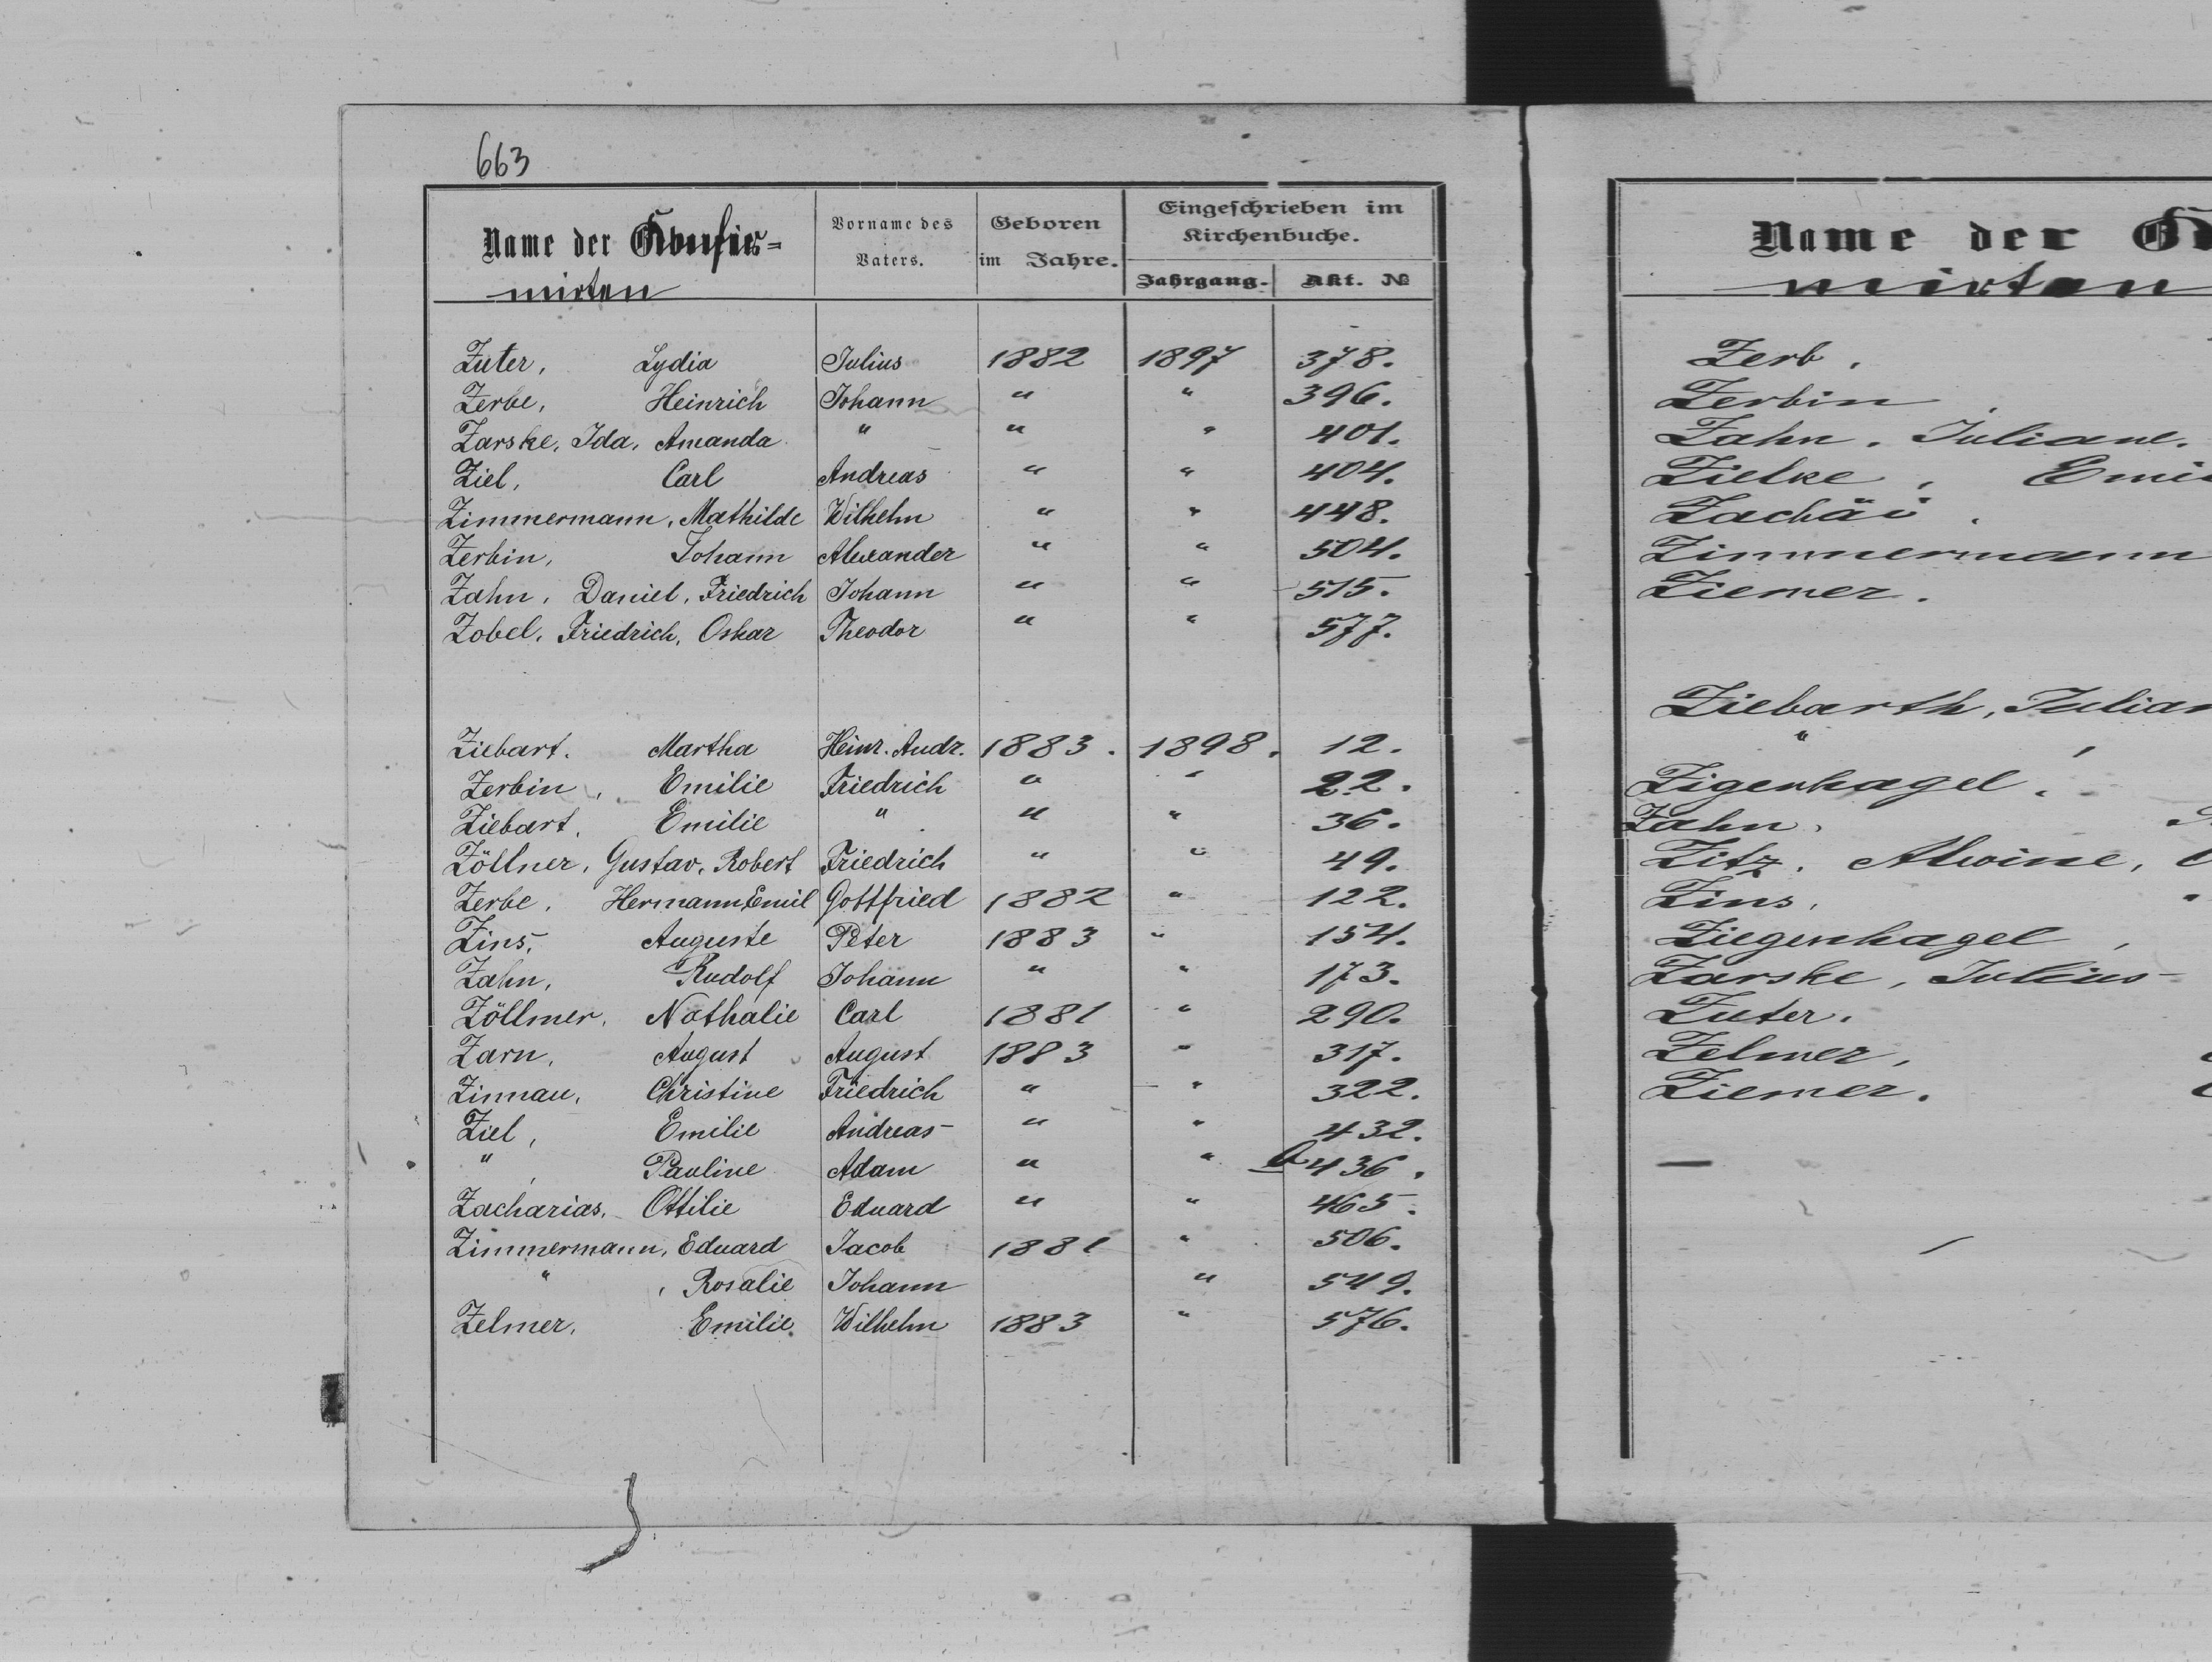 663
Name der Confir=
mirten
Vorname des
Vaters.
Geboren
im Jahre.
Eingeschrieben im
Kirchenbuche.
Jahrgang.
Akt. №
Zuter, Lydia Julius 1882 1897 378.
Zerbe, Heinrich Johann " " 396.
Zarske, Ida, Amanda " " " 401.
Ziel, Carl Andreas " " 404.
Zimmermann, Mathilde Wilhelm " " 448.
Zerbin, Johann Alexander " " 504.
Zahn, Daniel, Friedrich Johann " " 515.
Zobel, Friedrich, Oskar Theodor " " 577.
Ziebart. Martha Heinr. Andr. 1883. 1898. 12.
Zerbin, Emilie Friedrich " " 22.
Ziebart, Emilie " " " 36.
Zöllner, Gustav, Robert Friedrich " " 49.
Zerbe, Hermann Emil Gottfried 1882 " 122.
Zins, Auguste Peter 1883 " 154.
Zahn, Rudolf Johann " " 173.
Zöllmer, Nathalie Carl 1881 " 290.
Zarn, August August 1883 " 317.
Zinnau, Christine Friedrich " " 322.
Ziel, Emilie Andreas " " 432.
" , Pauline Adam " " b 436.
Zacharias, Ottilie Eduard " " 465.
Zimmermann, Eduard Jacob 1881 " 506.
" , Rosalie Johann " 549.
Zelmer, Emilie. Wilhelm 1883 " 576.
Name der
mirten
Zerb,
Zerbin,
Zahn, Juliane.
Zielke, Emi
Zachäi,
Zimmermann
Ziemer.
Ziebarth, Julian
" ,
Zigenhagel,
Zahn,
Zitz, Alwine,
Zins,
Ziegenhagel,
Zarske, Julius
Zuter.
Zelmer,
Ziemer.
—